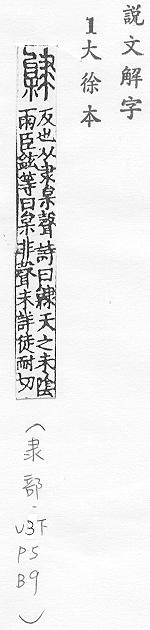 説文解字
1大徐本
𨽿
及也从隶枲聲詩曰𨽿天之未陰
雨臣鉉等曰枲非聲未詳徒耐切
（隶部.
V3下
P5
B9）